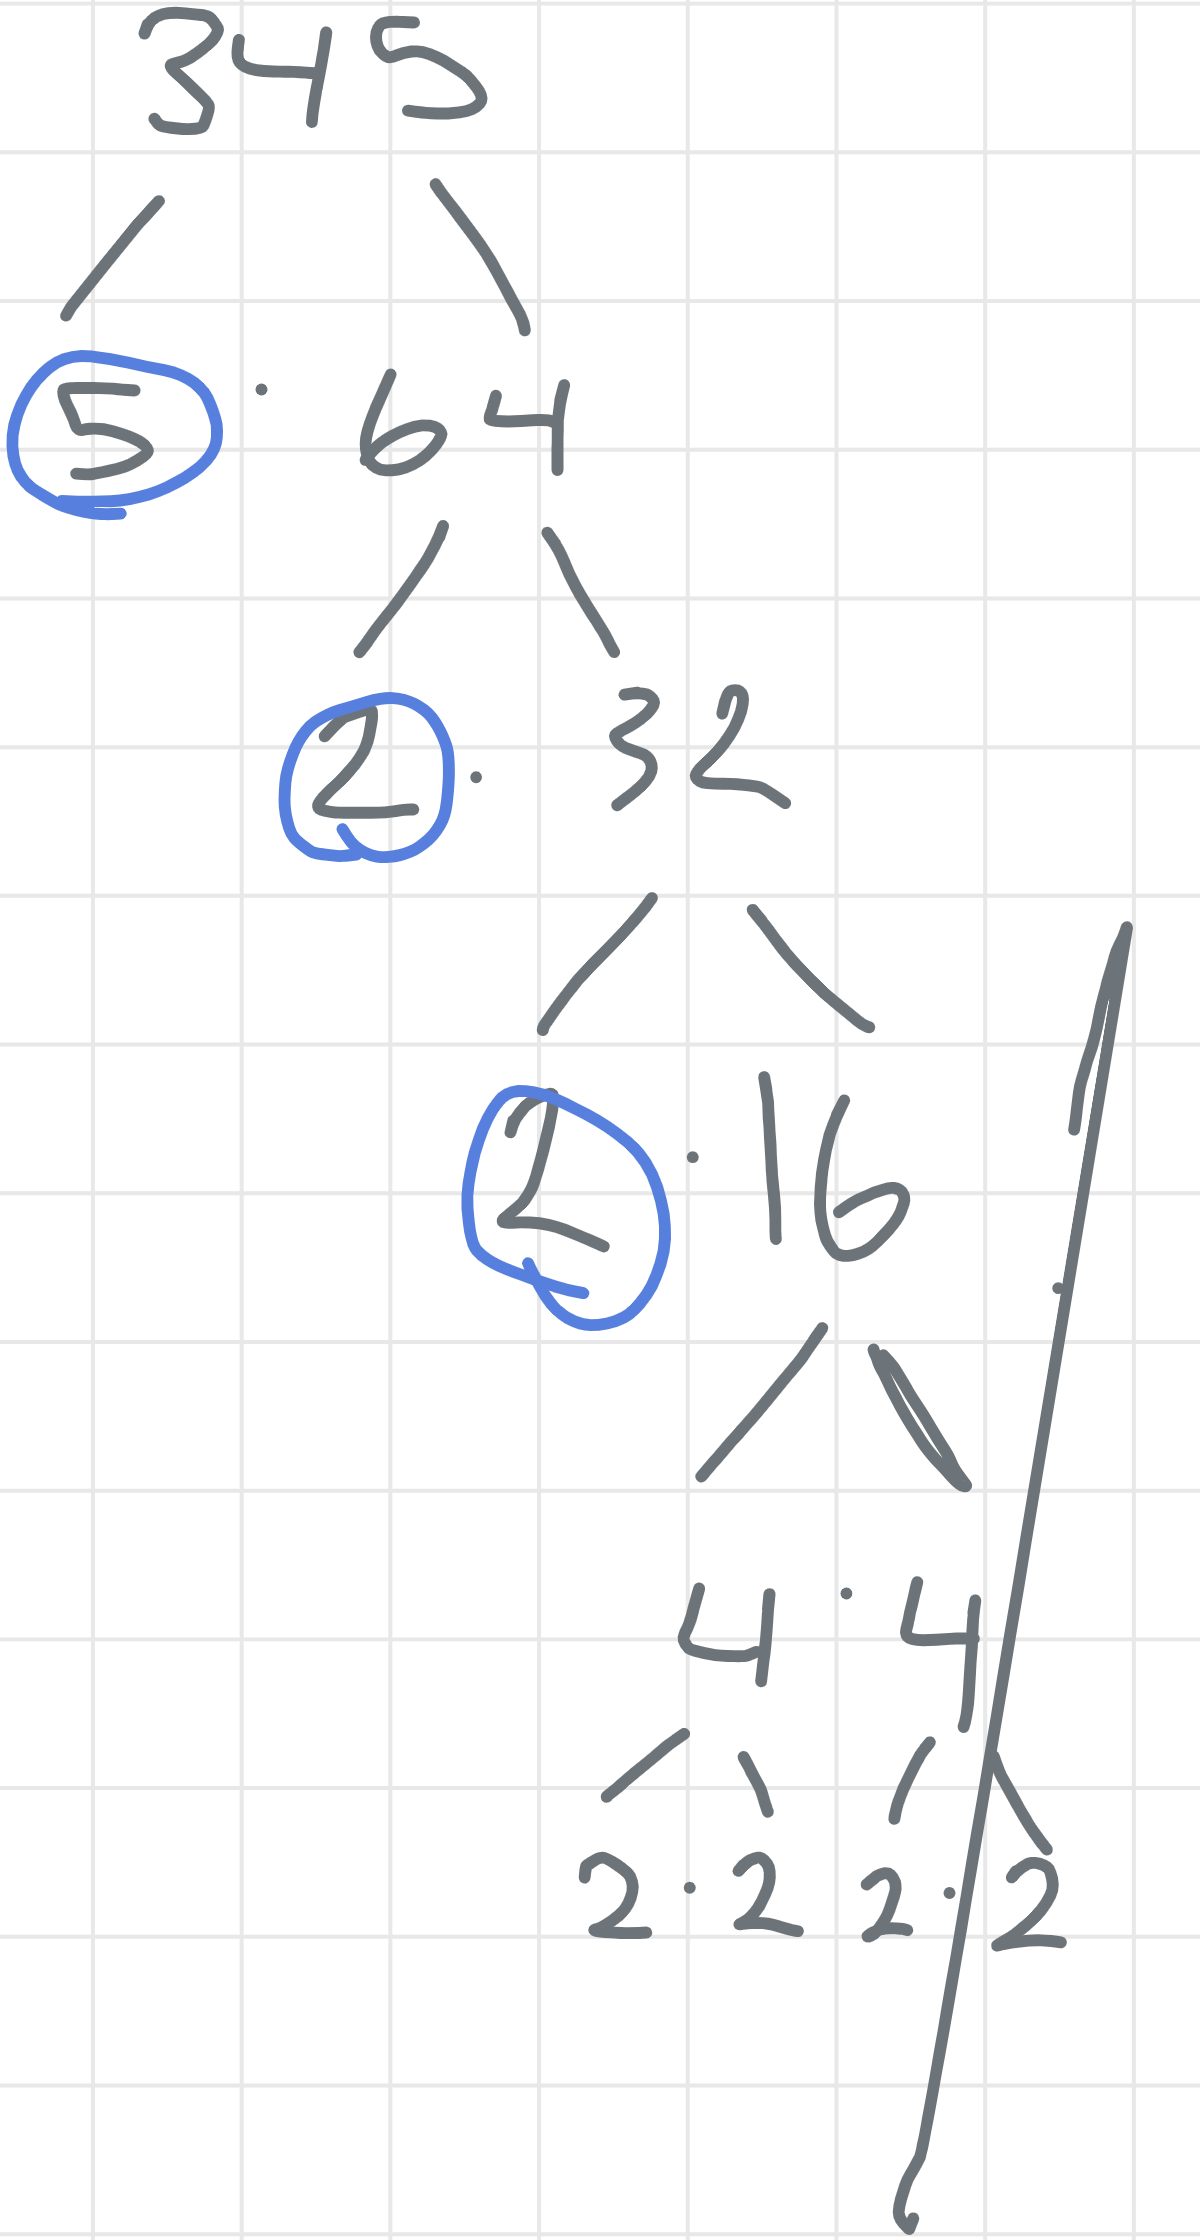 345
5 · 64
2 · 32
2 · 16
4 · 4
2 · 2 2 · 2